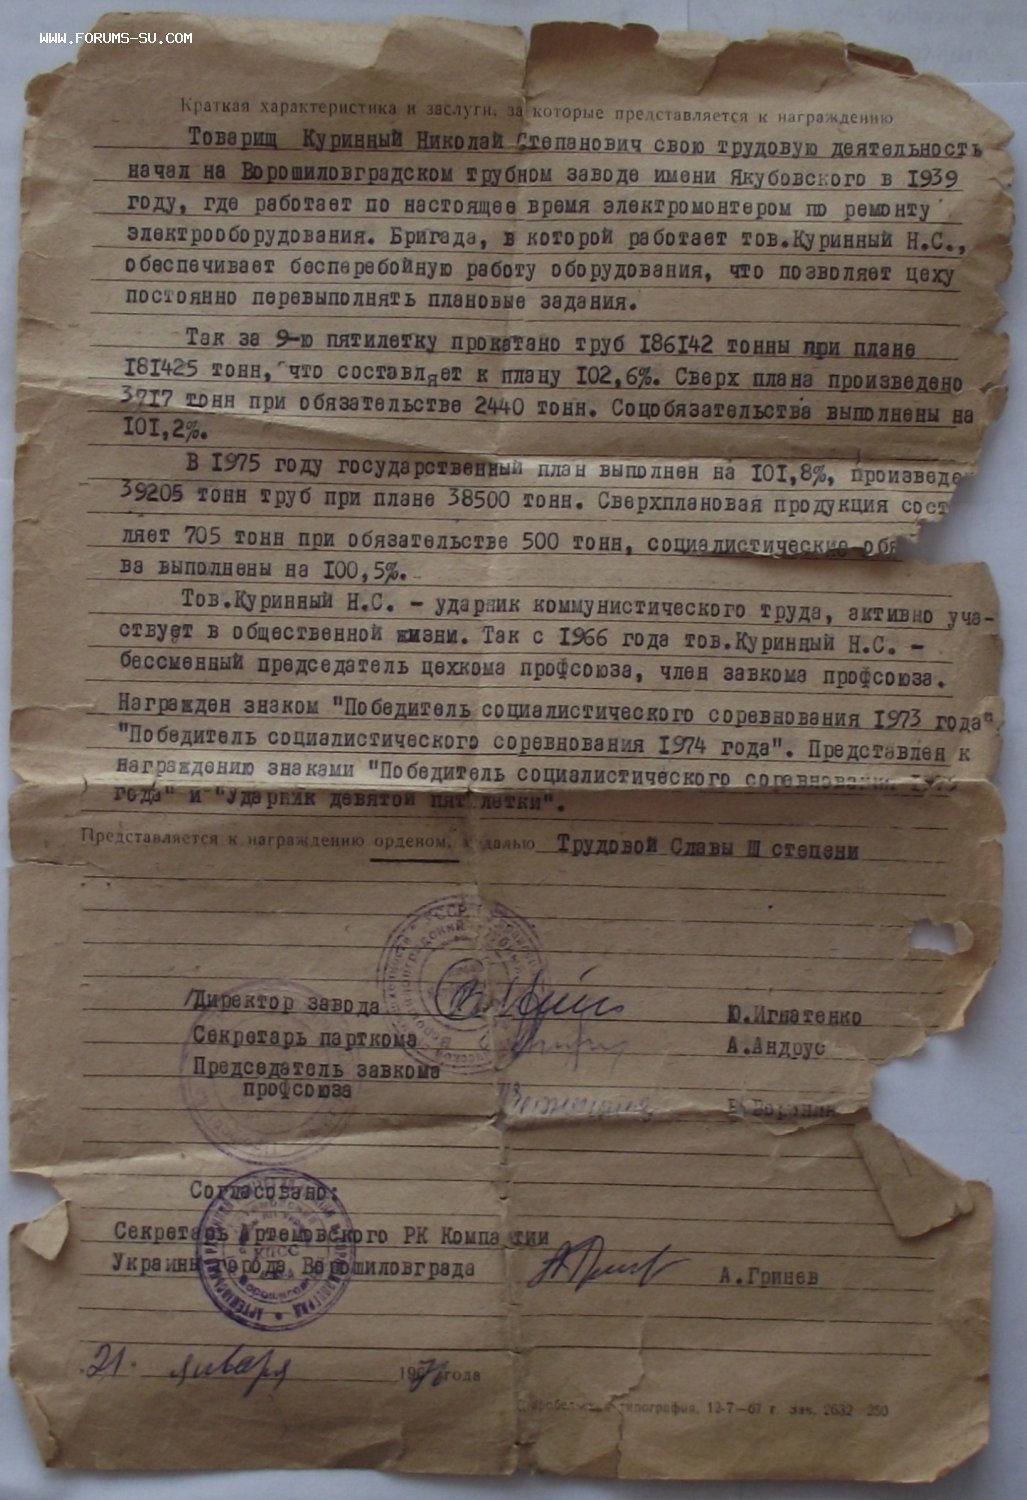 WWW.FORUMS-SU.COM
Краткая характеристика и заслуги, за которые представляется к награждению
Товарищ Куринный Николай Степанович свою трудовую деятельность
начал на Ворошиловградском трубном заводе имени Якубовского в 1939
году, где работает по настоящее время электромонтером по ремонту
электрооборудования. Бригада, в которой работает тов.Куринный Н.С.,
обеспечивает бесперебойную работу оборудования, что позволяет цеху
постоянно перевыполнять плановые задания.
Так за 9-ю пятилетку прокатано труб 186142 тонны при плане
181425 тонн, что составляет к плану 102,6%. Сверх плана произведено
3717 тонн при обязательстве 2440 тонн. Соцобязательства выполнены на
101,2%.
В 1975 году государственный план выполнен на 101,8%, произведе
39205 тонн труб при плане 38500 тонн. Сверхплановая продукция сост
ляет 705 тонн при обязательстве 500 тонн, социалистические обя
ва выполнены на 100,5%.
Тов.Куринный Н.С. - ударник коммунистического труда, активно уча-
ствует в общественной жизни. Так с 1966 года тов.Куринный Н.С. -
бессменный председатель цехкома профсоюза, член завкома профсоюза.
Награжден знаком "Победитель социалистического соревнования 1973 года"
"Победитель социалистического соревнования 1974 года". Представлен к
награждению знаками "Победитель социалистического соревнования 1975
года" и "Ударник девятой пятилетки".
Представляется к награждению орденом, медалью Трудовой Славы Ш степени
Директор завода Ю.Игнатенко
Секретарь парткома А.Андрус
Председатель завкома
профсоюза
Согласовано:
Секретарь Артемовского РК Компартии
Украины города Ворошиловграда А.Гринев
21. января 1976 года
типография, 12-7-67 г. Зак. 2632 250